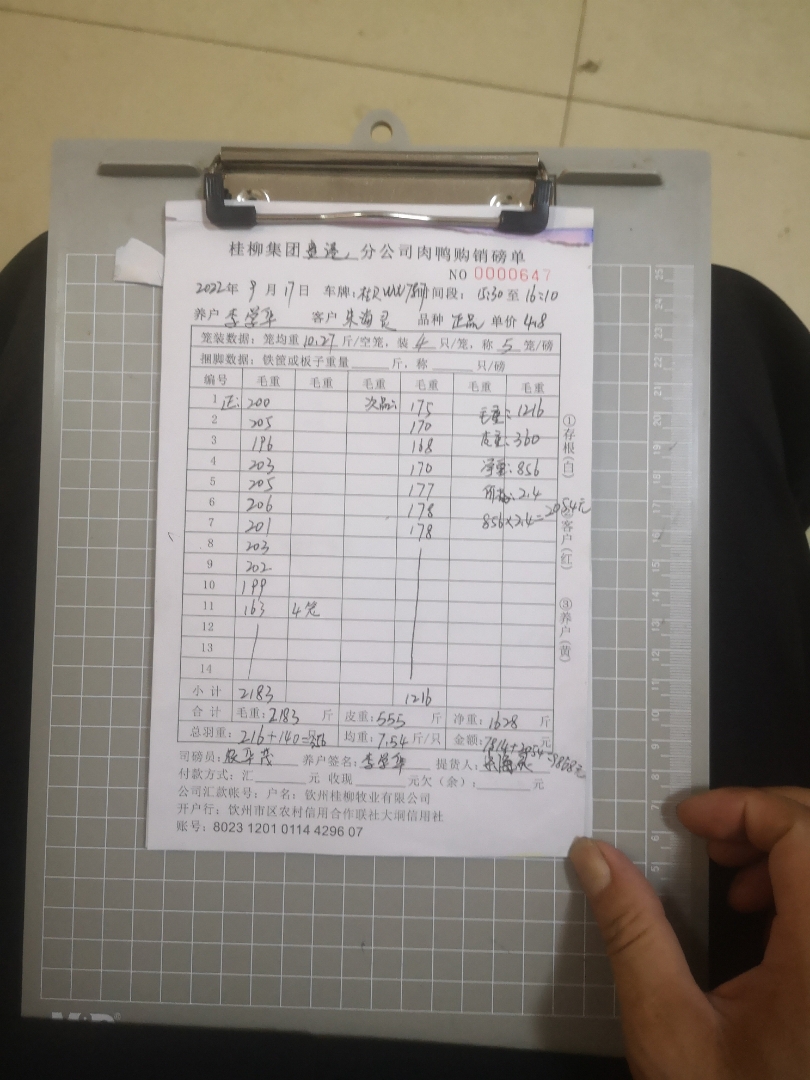 桂柳集团贵港分公司肉鸭购销磅单
NO 0000647
2022年9月17日 车牌: 时间段: 15:30至16:10
养户 李学华 客户 朱海 品种 正品 单价 4.8
笼装数据: 笼均重10.27斤/空笼, 装4只/笼, 称5笼/磅
捆脚数据: 铁筐或板子重量 斤, 称 只/磅
编号 毛重 毛重 毛重 毛重 毛重 毛重
1 正: 200 次品: 175 毛重: 1216
2 205 170 皮重: 360
3 196 168 净重: 856
4 203 170 价格: 2.4
5 205 177 856×2.4=2054元
6 206 178
7 201 178
8 203
9 202
10 199
11 163 4笼
12
13
14
小计 2183 1216
合计 毛重: 2183 斤 皮重: 555 斤 净重: 1628 斤
总羽重: 216+140=356 均重: 7.54斤/只 金额: 7814+2054=9868元
司磅员: 养户签名: 李学华 提货人: 朱海
付款方式: 汇 元 收现 元欠(余): 元
公司汇款账号: 户名: 钦州桂柳牧业有限公司
开户行: 钦州市区农村信用合作联社大垌信用社
账号: 8023 1201 0114 4296 07
①存根(白)
②客户(红)
③养户(黄)
25
22
21
19
18
17
16
15
14
13
12
11
10
9
8
7
6
5